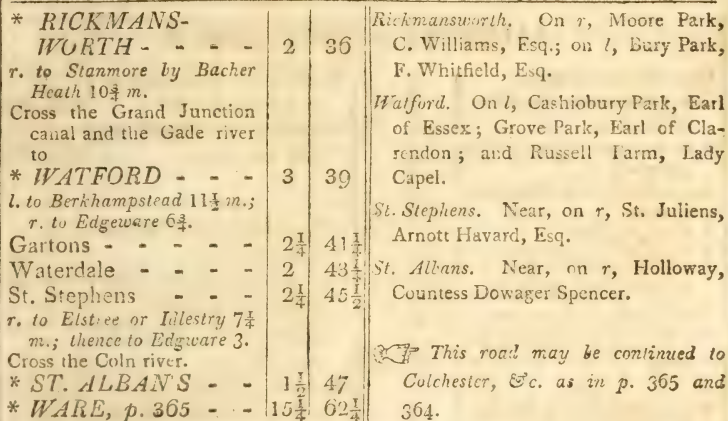 * RICKMANS-
WORTH - - - - 2 36
r. to Stanmore by Bacher
Heath 10¾ m.
Cross the Grand Junction
canal and the Gade river
to
* WATFORD - - - 3 39
l. to Berkhampstead 11½ m.;
r. to Edgeware 6¾.
Gartons - - - - 2¼ 41¼
Waterdale - - - - 2 43¼
St. Stephens - - - 2¼ 45½
r. to Elstree or Idlestry 7¼
m.; thence to Edgware 3.
Cross the Coln river.
* ST. ALBAN'S - - 1½ 47
* WARE, p. 365 - - 15¼ 62¼
Rickmansworth. On r, Moore Park,
C. Williams, Esq.; on l, Bury Park,
F. Whitfield, Esq.
Watford. On l, Cashiobury Park, Earl
of Essex; Grove Park, Earl of Cla-
rendon; and Russell Farm, Lady
Capel.
St. Stephens. Near, on r, St. Juliens,
Arnott Havard, Esq.
St. Albans. Near, on r, Holloway,
Countess Dowager Spencer.
☞ This road may be continued to
Colchester, &c. as in p. 365 and
364.